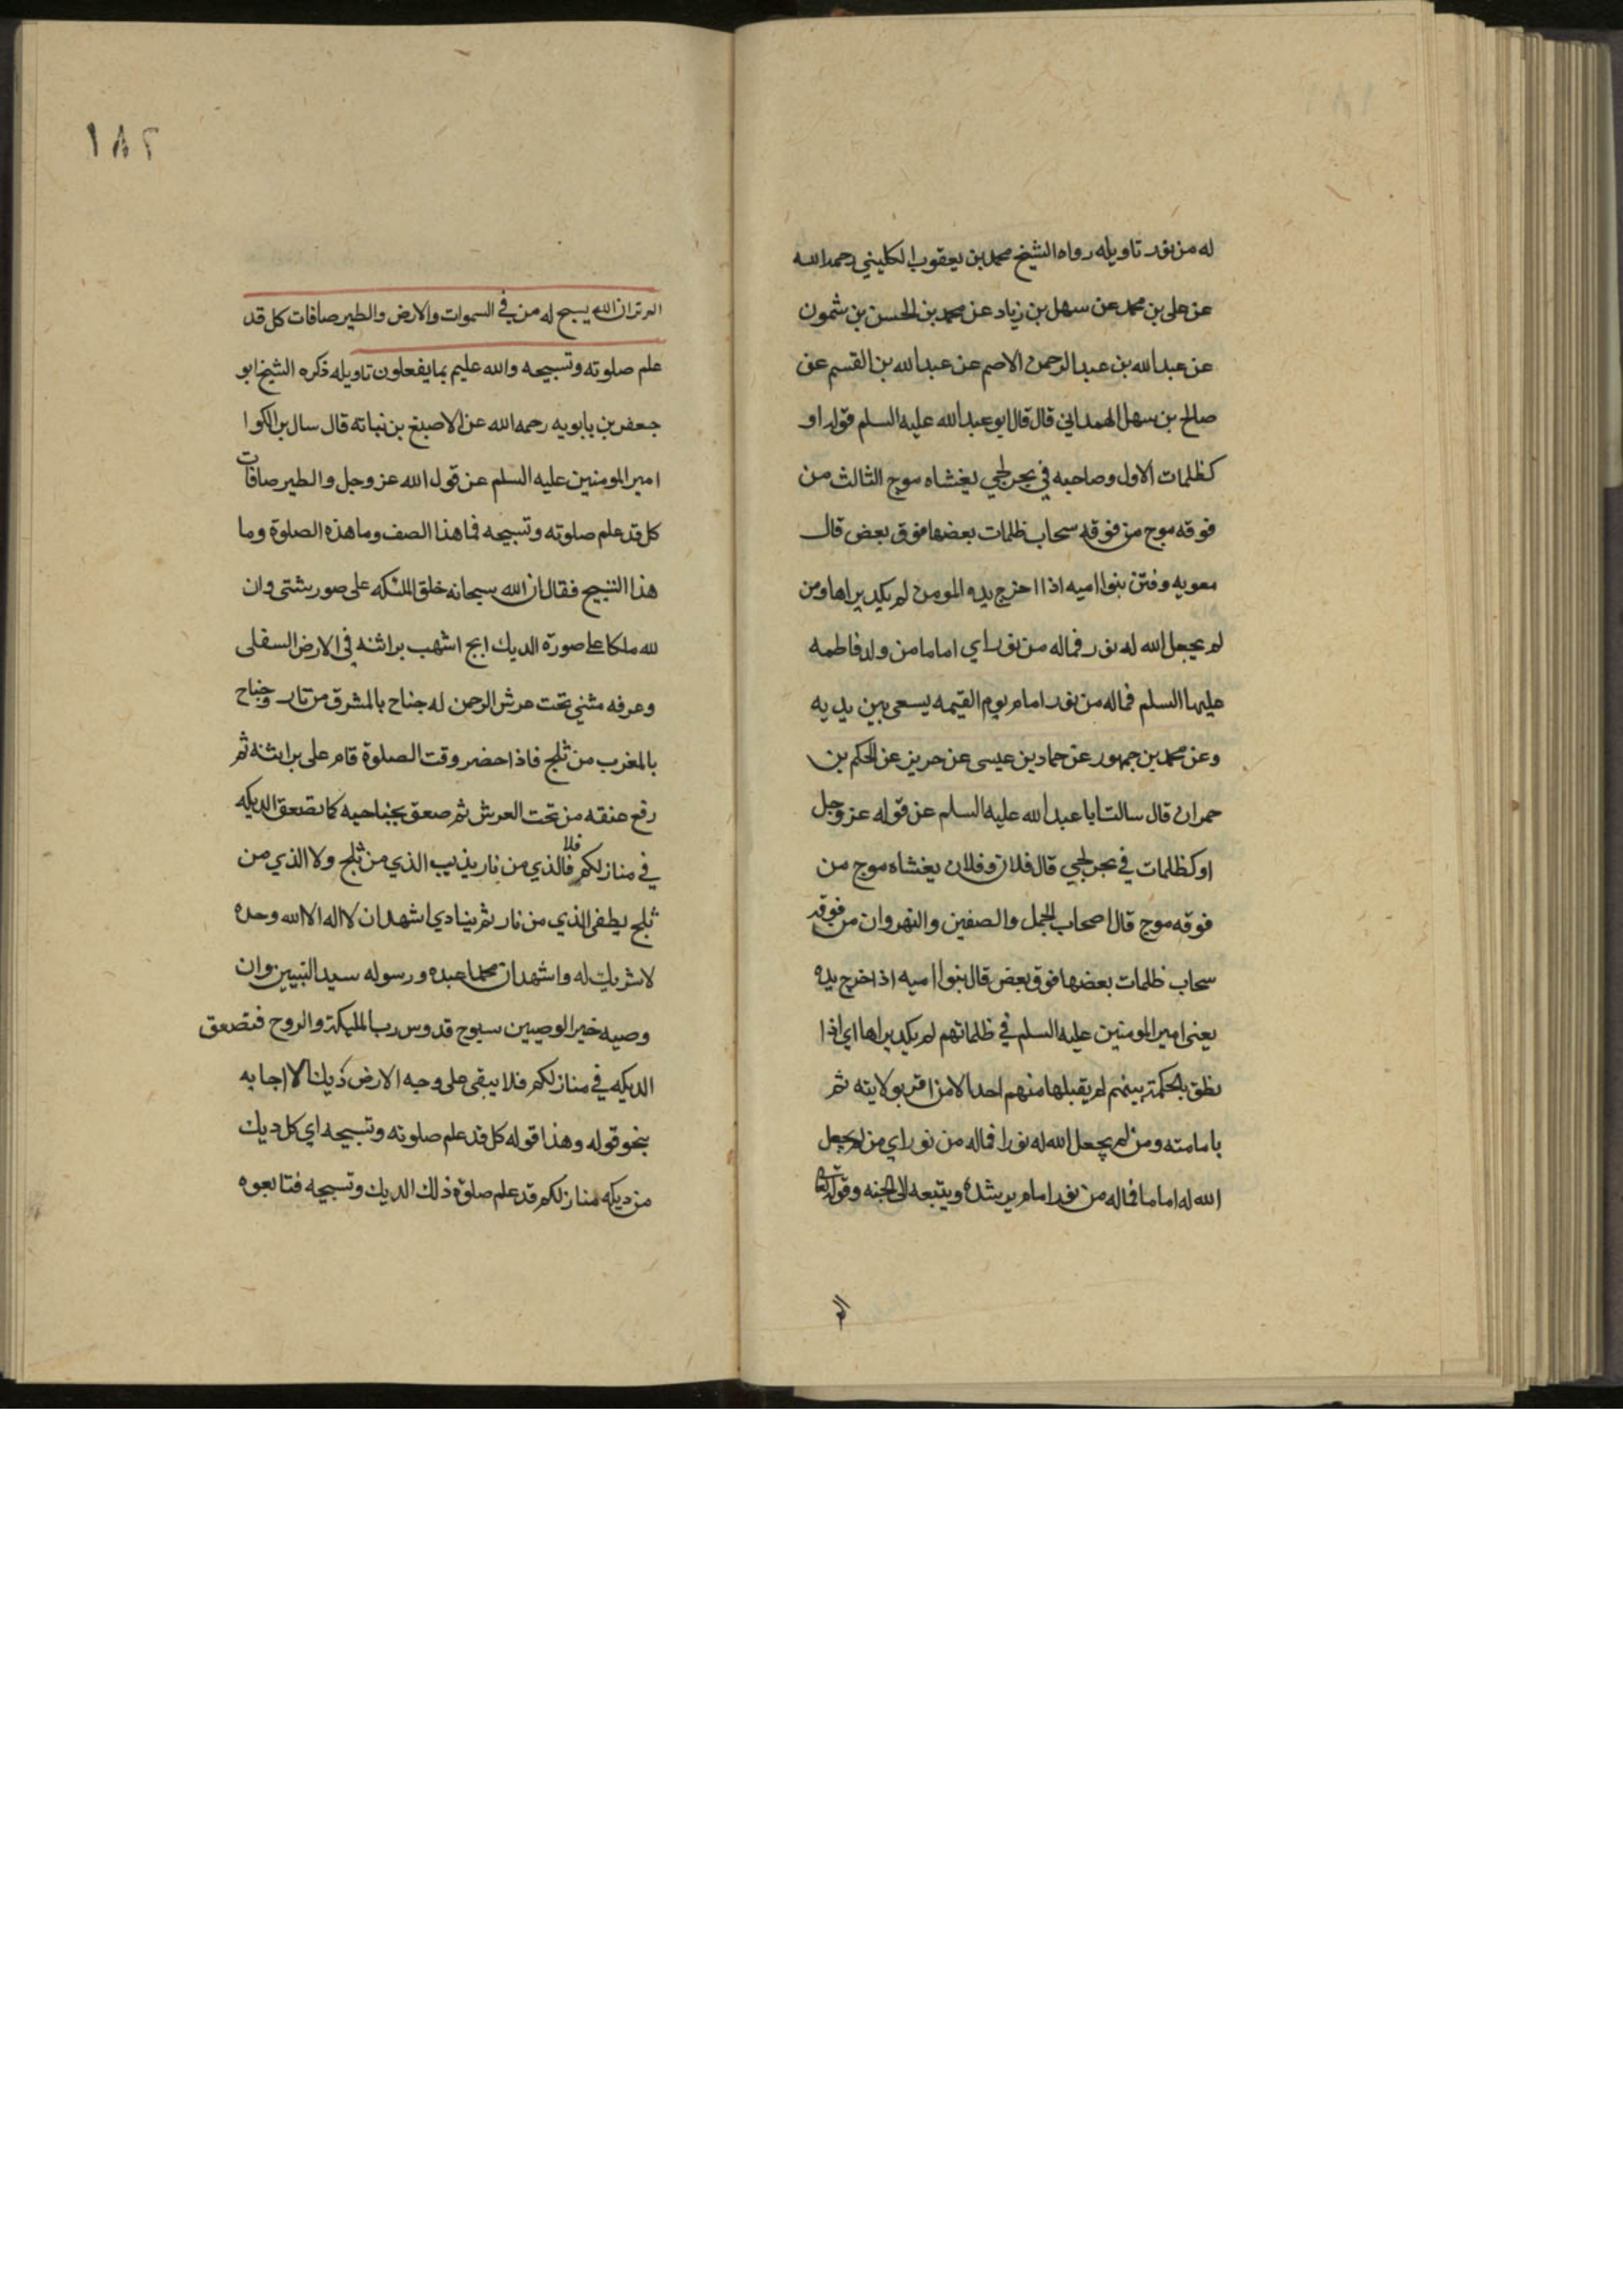 له من نور تاويله رواه الشيخ محمد بن يعقوب الكليني رحمه الله
عن علي بن محمد عن سهل بن زياد عن محمد بن الحسن بن شمون
عن عبد الله بن عبد الرحمن الاصم عن عبد الله بن القسم عن
صالح بن سهل الهمداني قال قال ابو عبد الله عليه السلم قوله او
كظلمات الاول وصاحبه في بحر لجي يغشاه موج الثالث من
فوقه موج من فوقه سحاب ظلمات بعضها فوق بعض قال
معويه وفتن بنوا اميه اذا اخرج يده المومن لم يكد يراها ومن
لم يجعل الله له نور فماله من نور اي اماما من ولد فاطمه
عليها السلم فماله من نور امام يوم القيمه يسعى بين يديه
وعن محمد بن جمهور عن حماد بن عيسى عن حريز عن الحكم بن
حمران قال سالت ابا عبد الله عليه السلم عن قوله عز وجل
او كظلمات في بحر لجي قال فلان وفلان يغشاه موج من
فوقه موج قال اصحاب الجمل والصفين والنهروان من فوقه
سحاب ظلمات بعضها فوق بعض قال بنوا اميه اذا اخرج يده
يعني امير المومنين عليه السلم في ظلماتهم لم يكد يراها اي اذا
نطق بالحكمة بينهم لم يقبلها منهم احد الا من اقر بولايته ثم
بامامته ومن لم يجعل الله له نورا فماله من نور اي من لم يجعل
الله له اماما فماله من نور امام يرشده ويتبعه الى الجنه وقوله تعالى
١٨٢
الم تر ان الله يسبح له من في السموات والارض والطير صافات كل قد
علم صلوته وتسبيحه والله عليم بما يفعلون تاويله ذكره الشيخ ابو
جعفر بن بابويه رحمه الله عن الاصبغ بن نباته قال سال بن الكوا
امير المومنين عليه السلم عن قول الله عز وجل والطير صافات
كل قد علم صلوته وتسبيحه فما هذا الصف وما هذه الصلوة وما
هذا التسبيح فقال ان الله سبحانه خلق الملئكه على صور شتى وان
لله ملكا على صورة الديك ابح اشهب براثنه في الارض السفلى
وعرفه مثني تحت عرش الرحمن له جناح بالمشرق من نار وجناح
بالمغرب من ثلج فاذا حضر وقت الصلوة قام على براثنه ثم
رفع عنقه من تحت العرش ثم صعق بجناحيه كما تصعق الديكه
في منازلكم فلا فالذي من نار يذيب الذي من ثلج ولا الذي من
ثلج يطفي الذي من نار ثم ينادي اشهد ان لا اله الا الله وحده
لا شريك له واشهد ان محمدا عبده ورسوله سيد النبيين وان
وصيه خير الوصيين سبوح قدوس رب المليكة والروح فتصعق
الديكه في منازلكم فلا يبقى على وجه الارض ديك الا اجابه
بنحو قوله وهذا قوله كل قد علم صلوته وتسبيحه اي كل ديك
من ديكه منازلكم قد علم صلوة ذلك الديك وتسبيحه فتابعوه